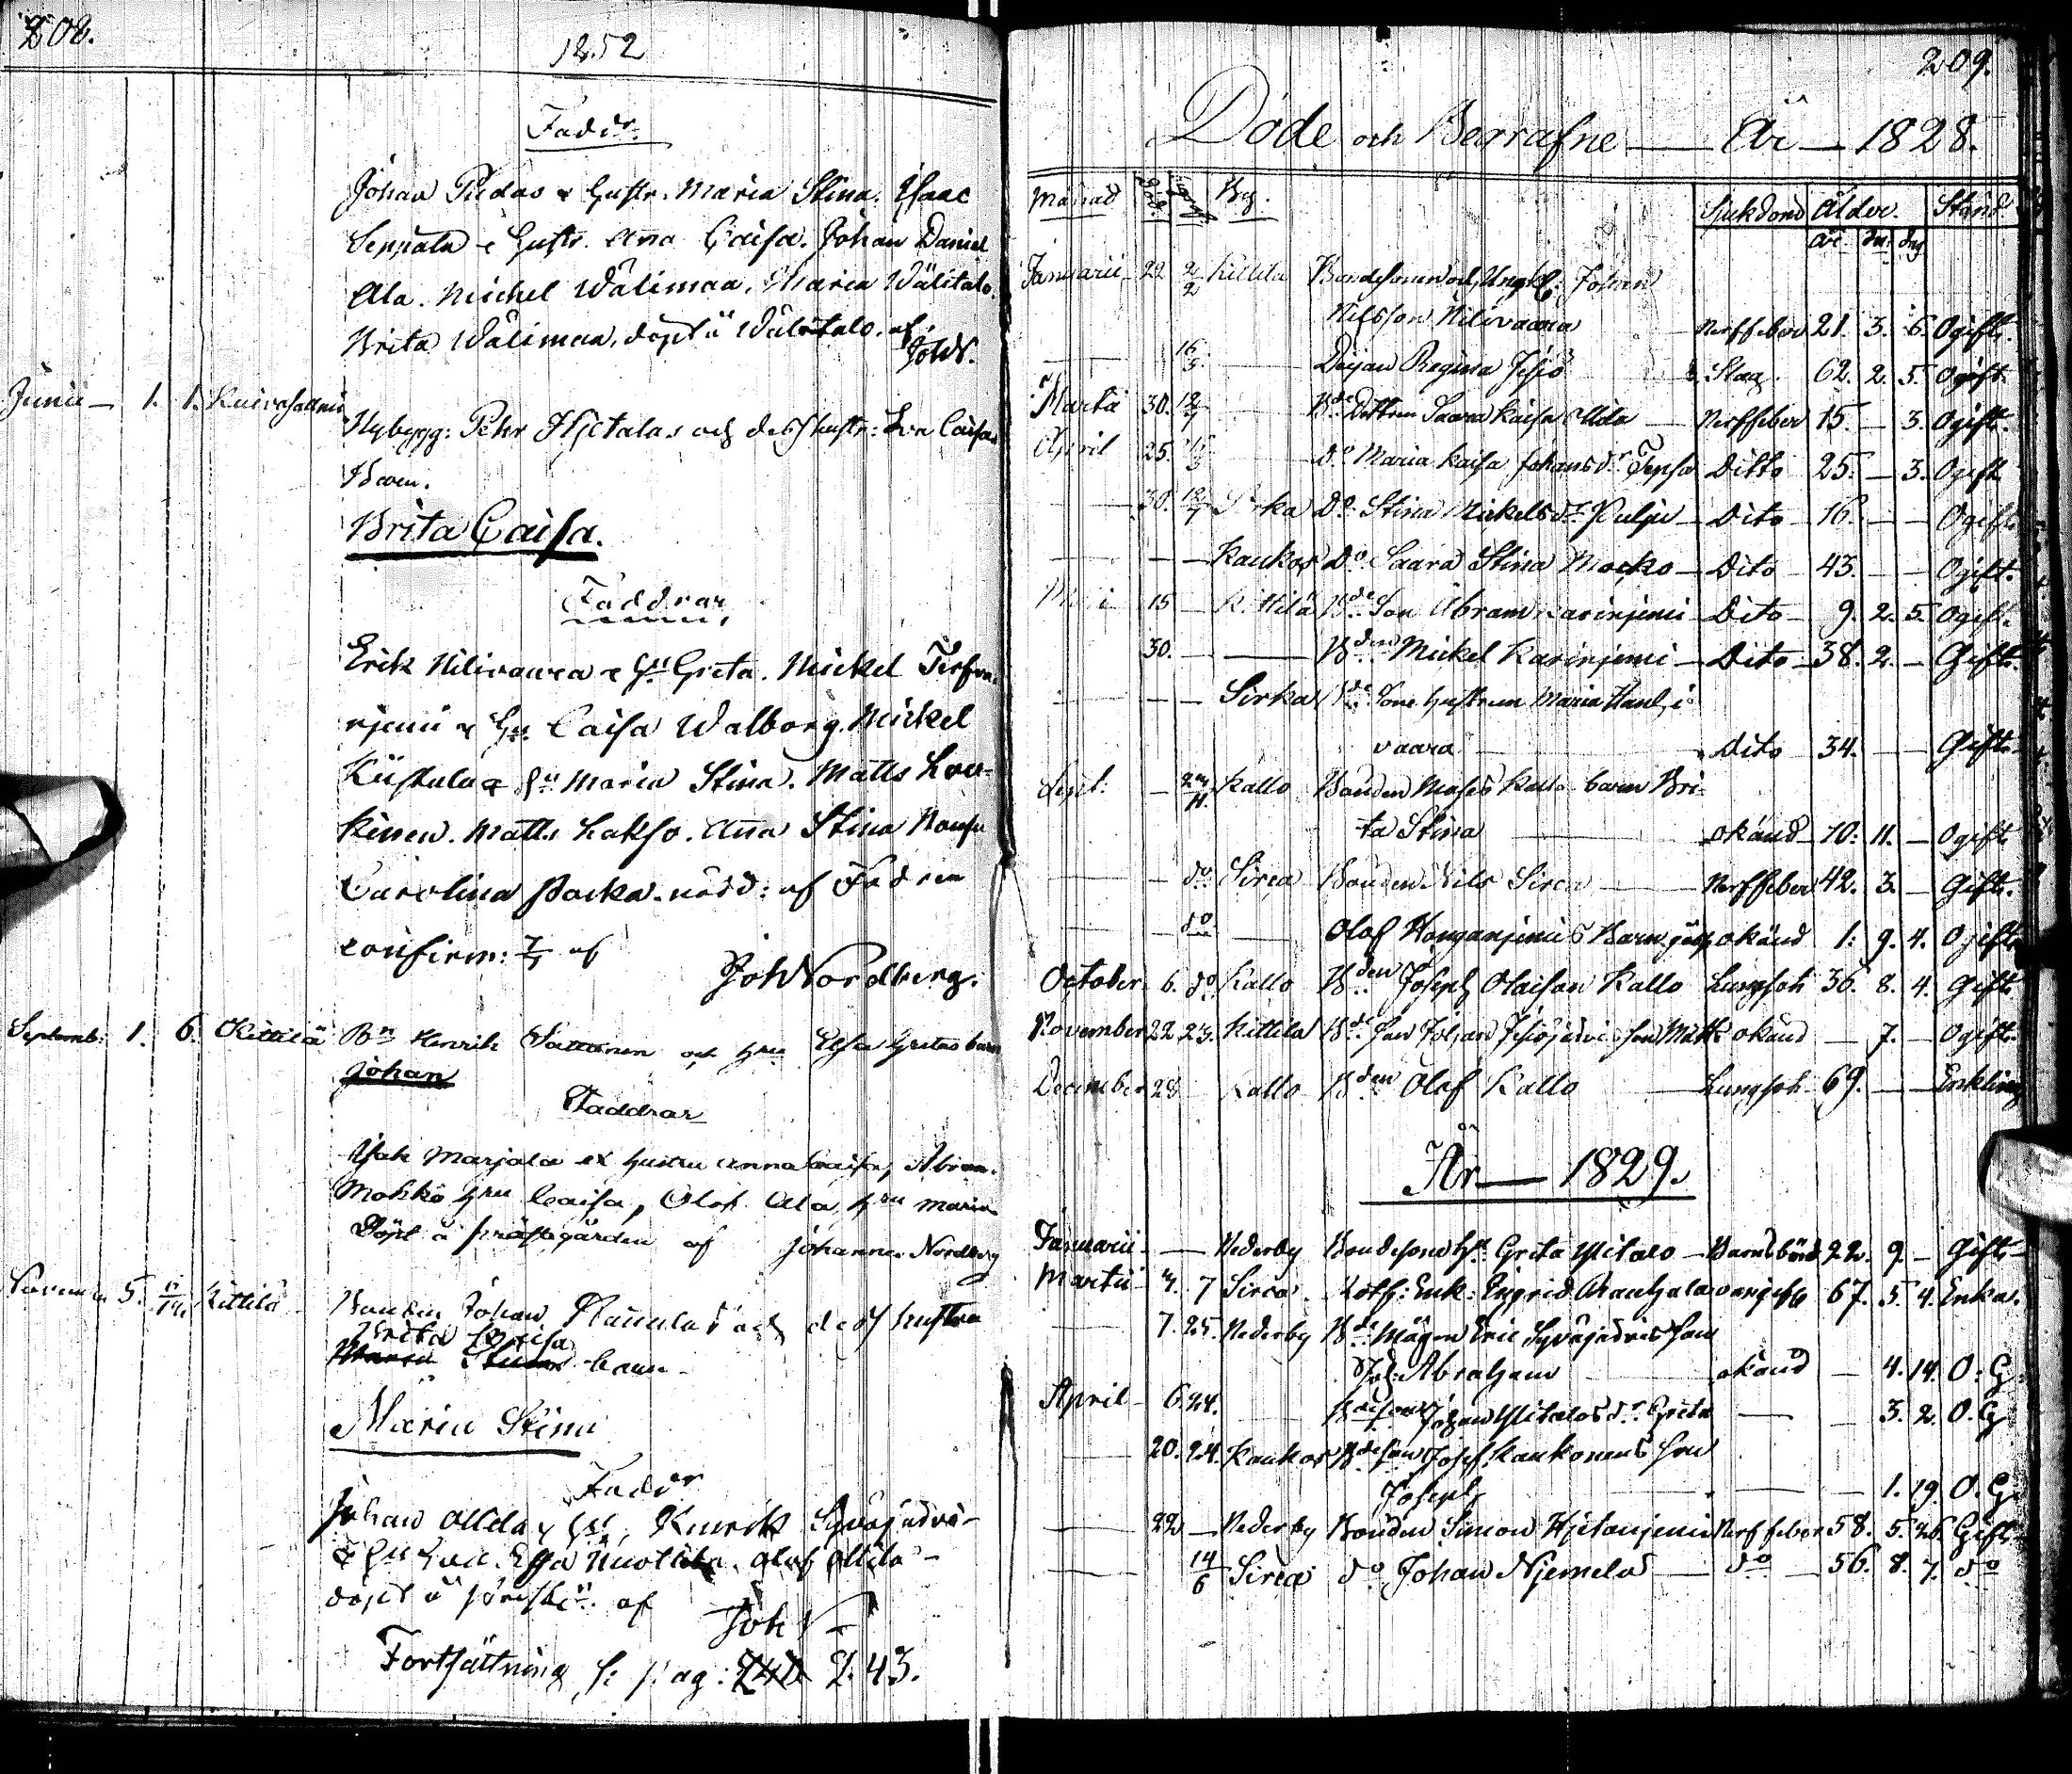 208.
1852
Fadd:r
Johan Pudas & Hustr. Maria Stina. Isaac
Seppala & Hustr. Anna Caisa. Johan Daniel
Ala. Michel Wälimaa, Maria Wälitalo.
Brita Wälimaa, döpt å Wälitalo. af
Joh N.
Junii — 1. 1. Kuivasalmi
Nybygg: Pehr Hjetalas och dess hustr: Eva Caisas
Barn.
Brita Caisa.
Faddrar
Erik Nilivaara & H:u Greta. Mickel
njemi & H:u Caisa Walborg. Mickel
Kiistala & H:u Maria Stina. Matts Lou-
kinen. Matts Lakso. Anna Stina
Carolina Packa. nöd: af Fadren
confirm: 7/7 af
Joh Nordberg.
Septemb: 1. 6. Kittilä B:n Henrik Sattanen och H:ru Elsa Gretas barn
Johan
Faddrar
Isak Marjala et hustru Anna Caisa, Abram
Mokko H:ru Caisa, Olof Ala H:ru Maria
Döpt å prästegården af Johannes Nordberg
5. Kittilä Bonden Johan Raunulas och dess hustru
Brita Caisa
Maria Stinas barn
Maria Stina
Fadd:r
Johan Ollila & H:u, Henrik Syväjärvi
& H:u Eva. Elsa Olof Ollila
döpt å af
Joh N
Fortsättning s: pag: 242 243.
209.
Döde och Begrafne — År — 1828.
Månad Död. Begr. By. Sjukdom Ålder. Stånd
År Mn: Dag
Januarii 22 2/2 Kittilä Bondesonen och Ungk: Johan
Nilsson Nilivaara Nerffeber 21. 3. 6. Ogift.
— 16/3 — Pigan Regina Jesiö Slag. 62. 2. 5. Ogift
Martii 30. 12/7 — B:de Dottren Saara Kaisa Ollila Nerffeber 15. — 3. Ogift.
April 25. — D:o Maria Kaisa Johansd:r Seppä Ditto 25. — 3. Ogift
— 30. 12/7 Sirka D:o Stina Mickelsd:r Pulju — Dito 16. — — Ogift
— — — Kaukos D:o Saara Stina Mocko — Dito 43. — — Ogift.
Maji 15 — Kittilä B:de Son Abram Karinjemi — Dito 9. 2. 5. Ogift.
30. — — B:den Mickel Karinjemi — Dito 38. 2. — Gift.
— — — Sirka B:de Sone hustrun Maria Hanhi
vaara — Dito 34. — — Gift
Sept: — 23/11. Kallo Bonden Moses Kallo barn Bri-
ta Stina — okänd 10. 11. — Ogift
— — d:o Sirca Bonden Nils Sirca — Nerffeber 42. 3. — Gift.
— — d:o — Olof Honganjemis Barn okänd 1. 9. 4. Ogift
October 6. d:o Kallo B:den Joseph Olaison Kallo Lungsot 36. 8. 4. Gift
November 22 23. Kittilä B:de Son Johan Jesiöjärvis son Matts okänd — 7. — Ogift.
December 28 Kallo B:den Olof Kallo — Lungsot 69. — — Enkling
År — 1829.
Januarii — — Nederby Bondesone H:u Greta Ylitalo — Barnsbörd 22. 9. — Gift
Martii 3. 7 Sirca. Enk: Ingrid 67. 5. 4. Enka.
— 7. 25. Nederby B:de Mågen Eric Syväjärvis Son
Abraham okänd — 4. 14. O. G.
April 6. 24. Johan Ylitalos d:r Greta — — 3. 2. O. G
20. 24. Kaukos B:de Son Josef Kaukonens Son
Joseph — — 1. 19. O. G.
— 22 — Nederby Bonden Simon Hjetanjemi Nerffeber 58. 5. 26. Gift
— 14/6 Sirca d:o Johan Njemelä — d:o 56. 8. 7. d:o